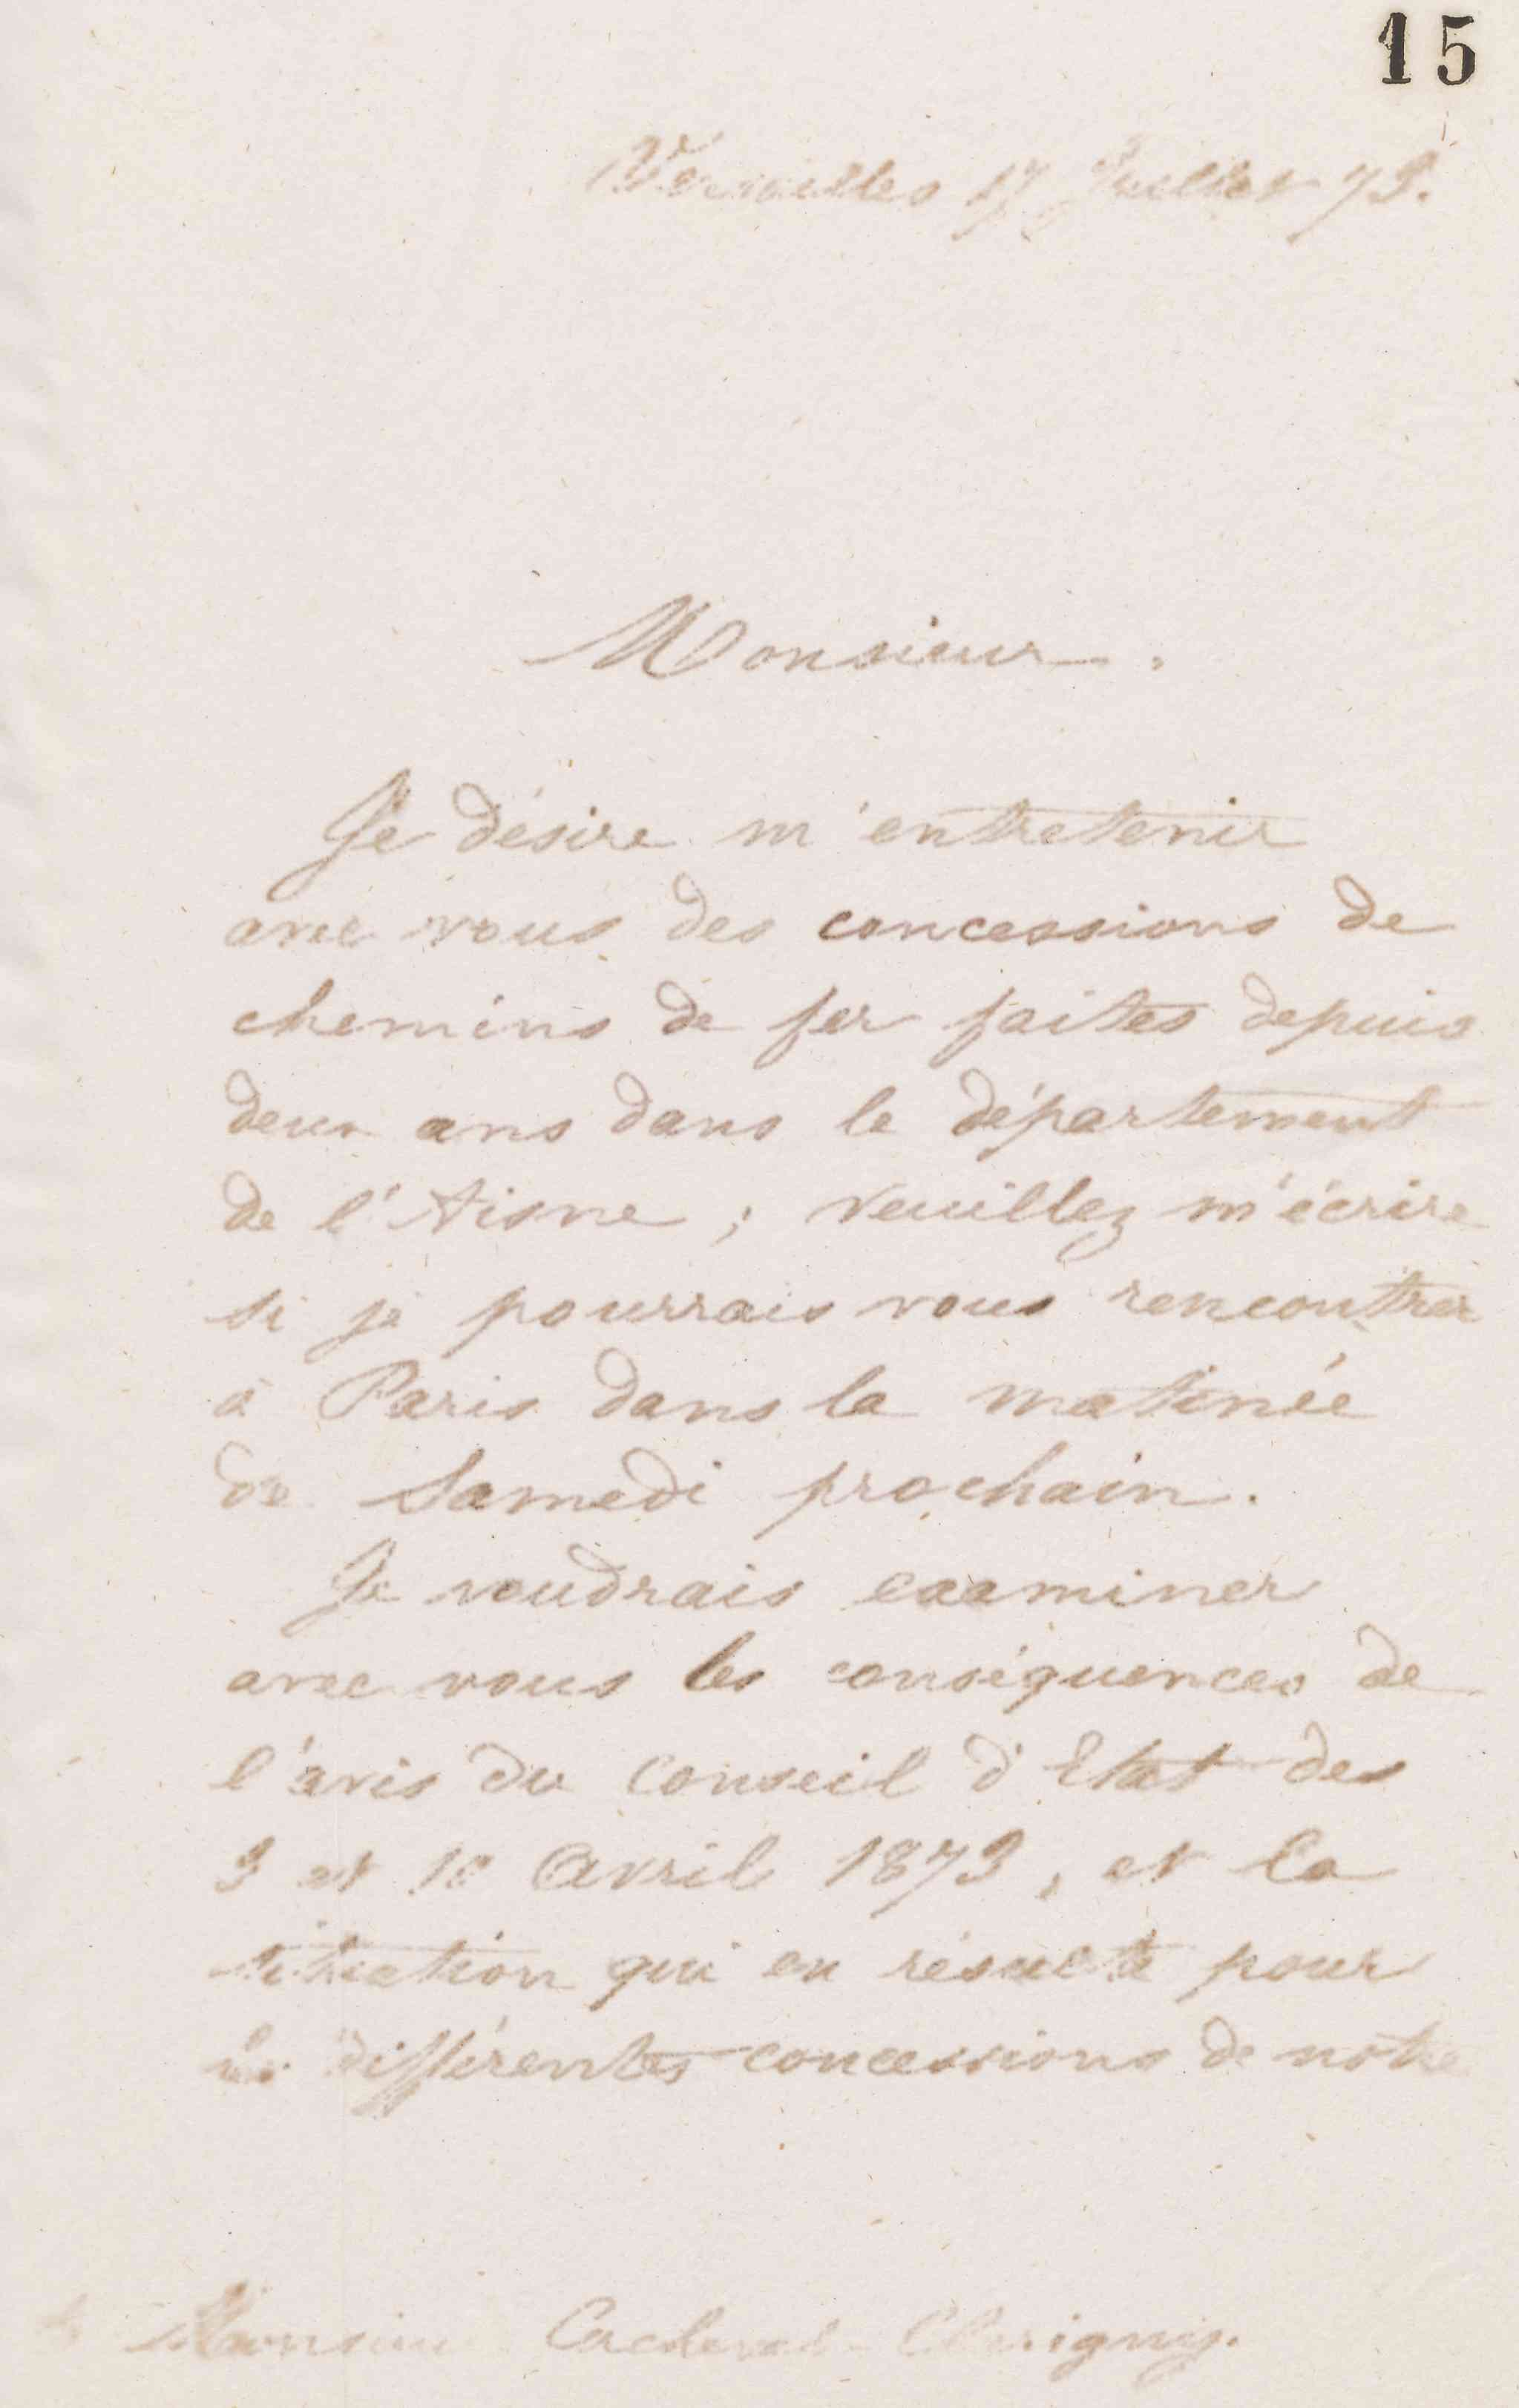 15
Versailles 17 Juillet 73.
Monsieur.
Je désire m'entretenir
avec vous des concessions de
chemins de fer faites depuis
deux ans dans le département
de l'Aisne ; veuillez m'écrire
si je pourrais vous rencontrer
à Paris dans la matinée
de Samedi prochain.
Je voudrais examiner
avec vous les conséquences de
l'avis du Conseil d'Etat des
3 et 10 Avril 1873, et la
situation qui en résulte pour
les différentes concessions de notre
Monsieur